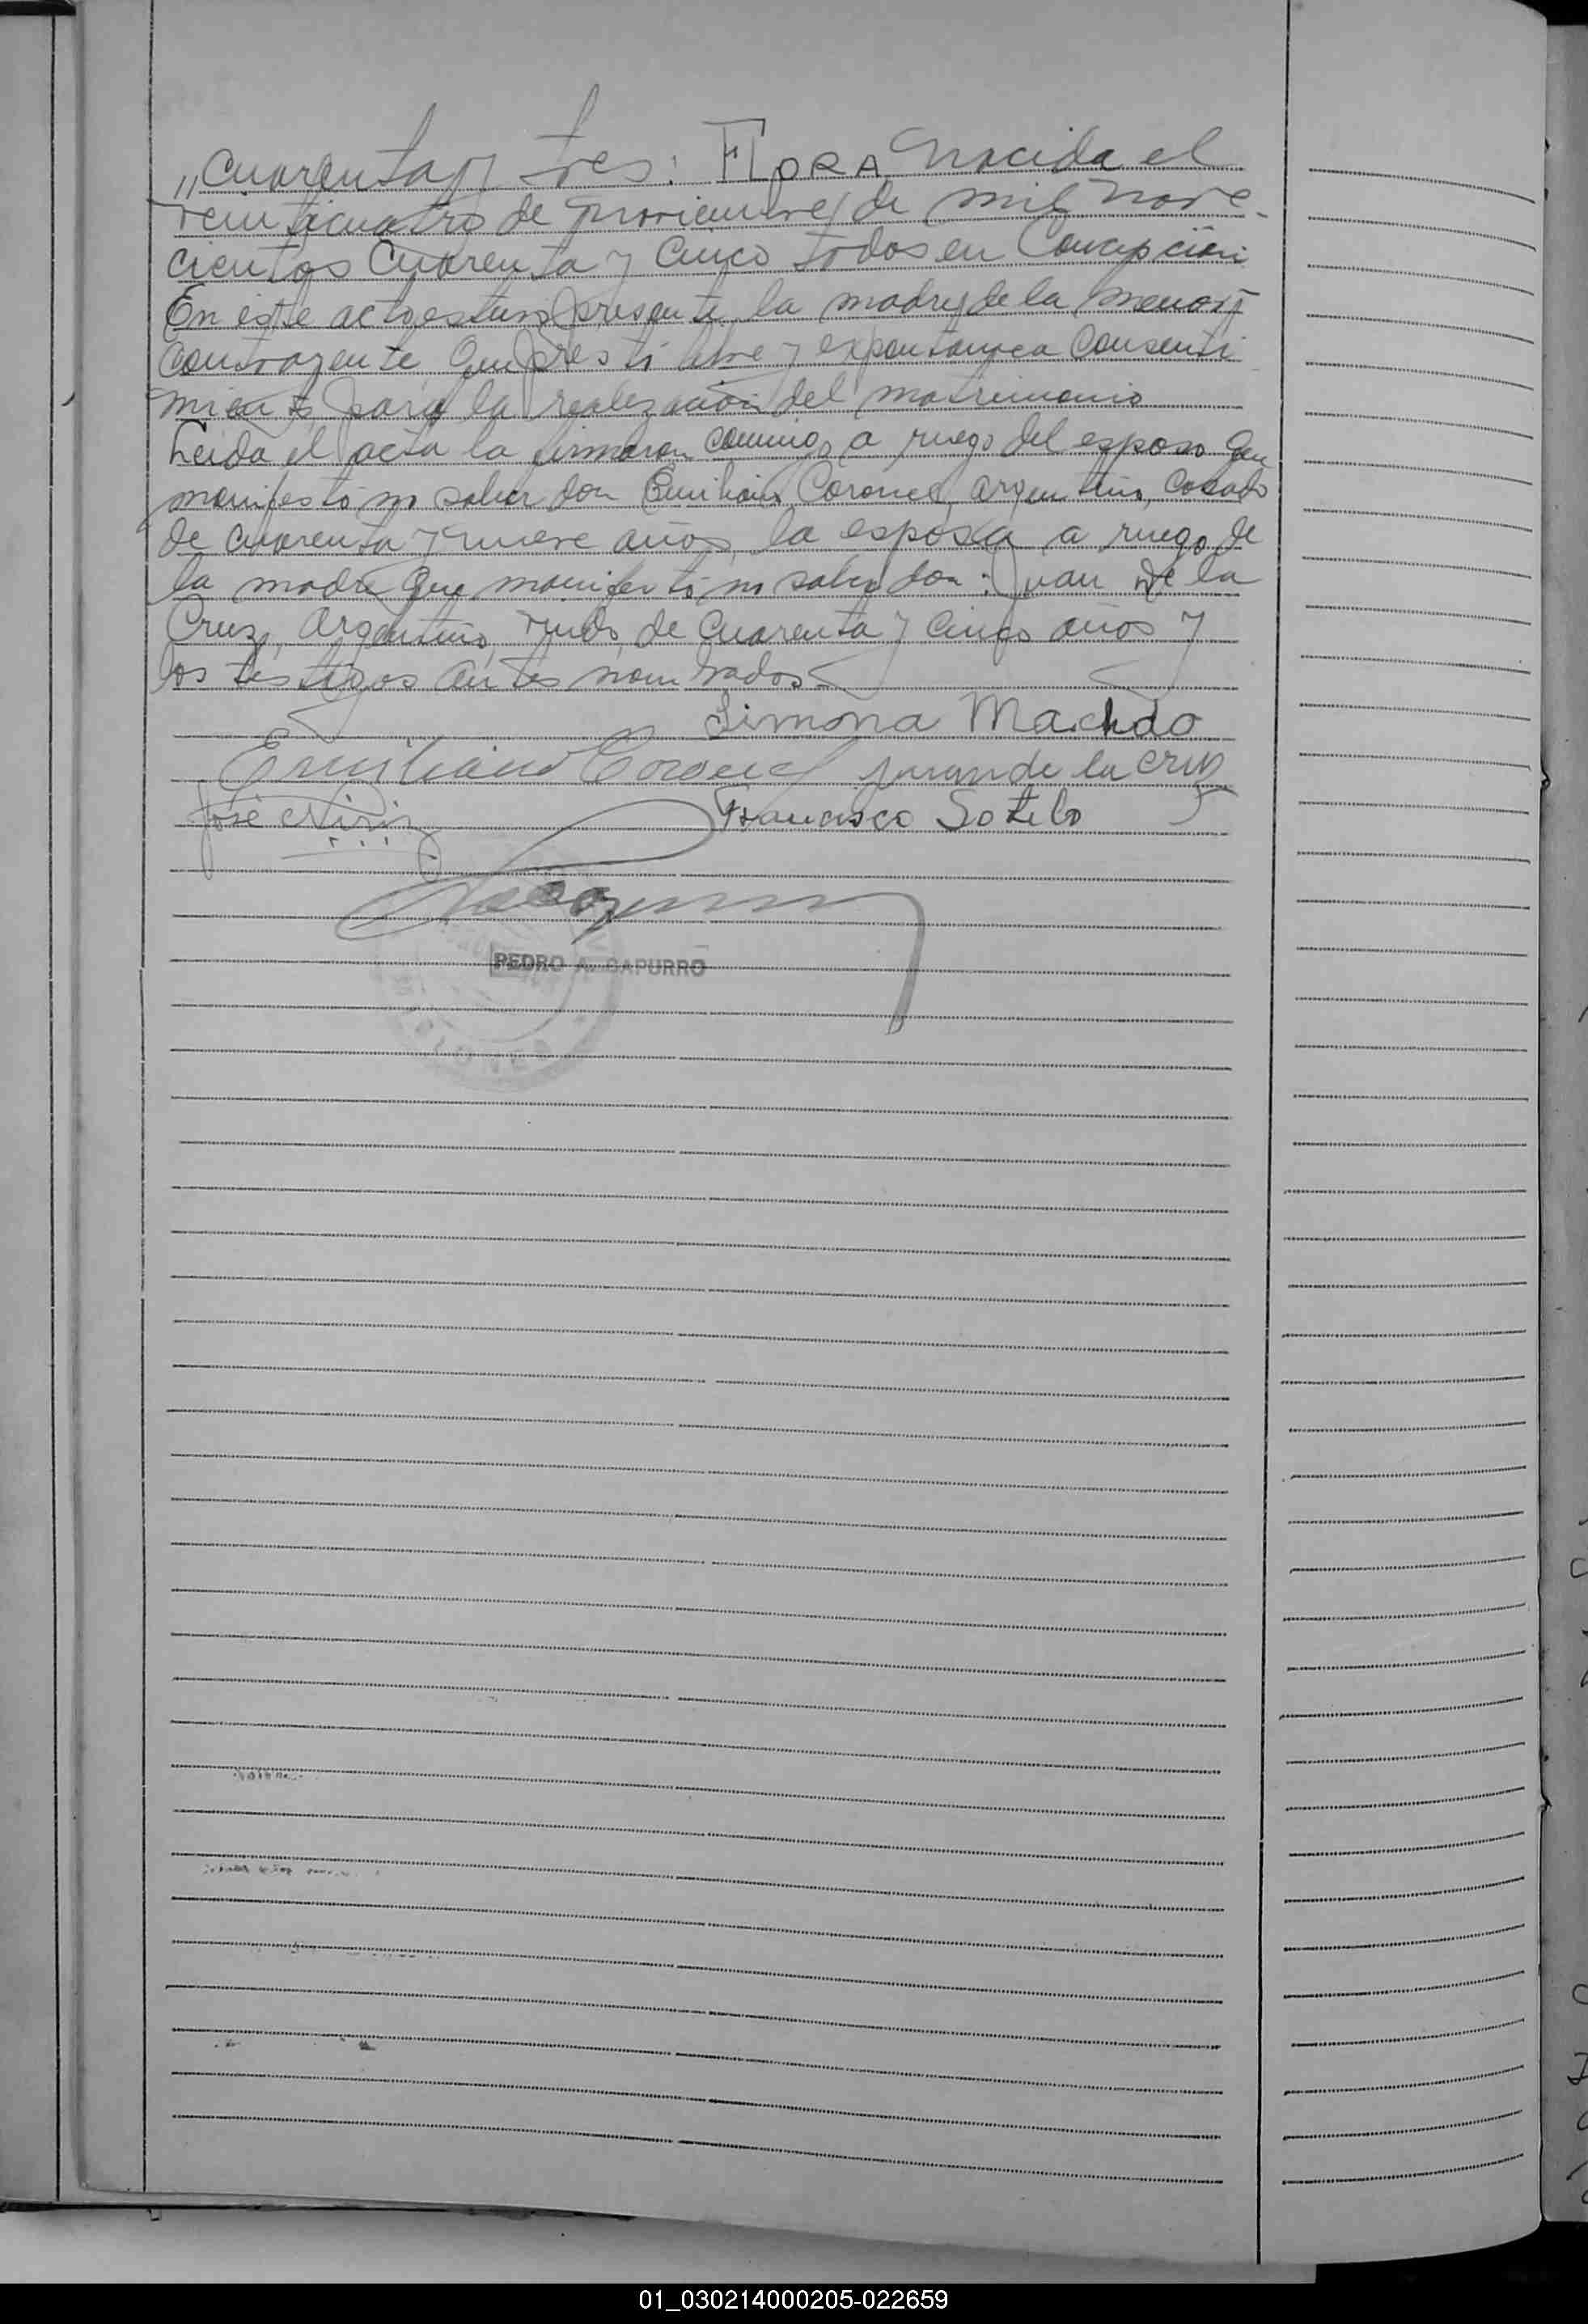 „cuarenta y tres: FLORA nacida el
veinticuatro de noviembre de mil nove-
cientos cuarenta y cinco todos en Concepción
En este acto estuvo presente la madre de la menor
contrayente que prestó libre y expontanea consenti
miento para la realización del matrimonio
Leida el acta la firmaron conmigo a ruego del esposo que
manifestó no saber don Emiliano Coronel argentino, casado
de cuarenta y nueve años, la esposa a ruego de
la madre que manifestó no saber don: Juan de la
Cruz, argentino, viudo, de cuarenta y cinco años y
los testigos antes nombrados
Simona Machdo
Emiliano Coronel Juan de la Cruz
José Francisco Sotelo
PEDRO A. CAPURRO
01_030214000205-022659